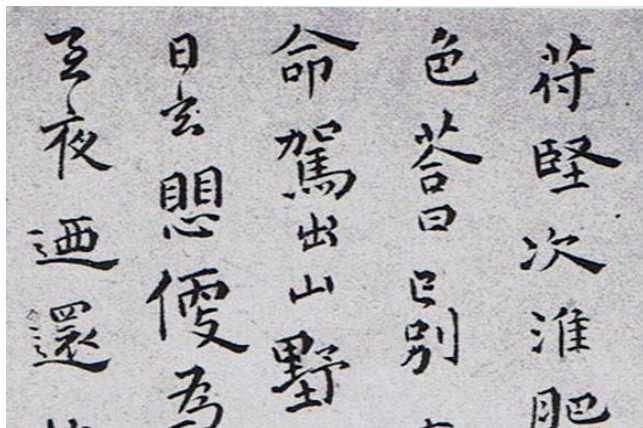 苻堅次淮肥
色荅曰已別
命駕出山墅
日玄懼便為
至夜迺還